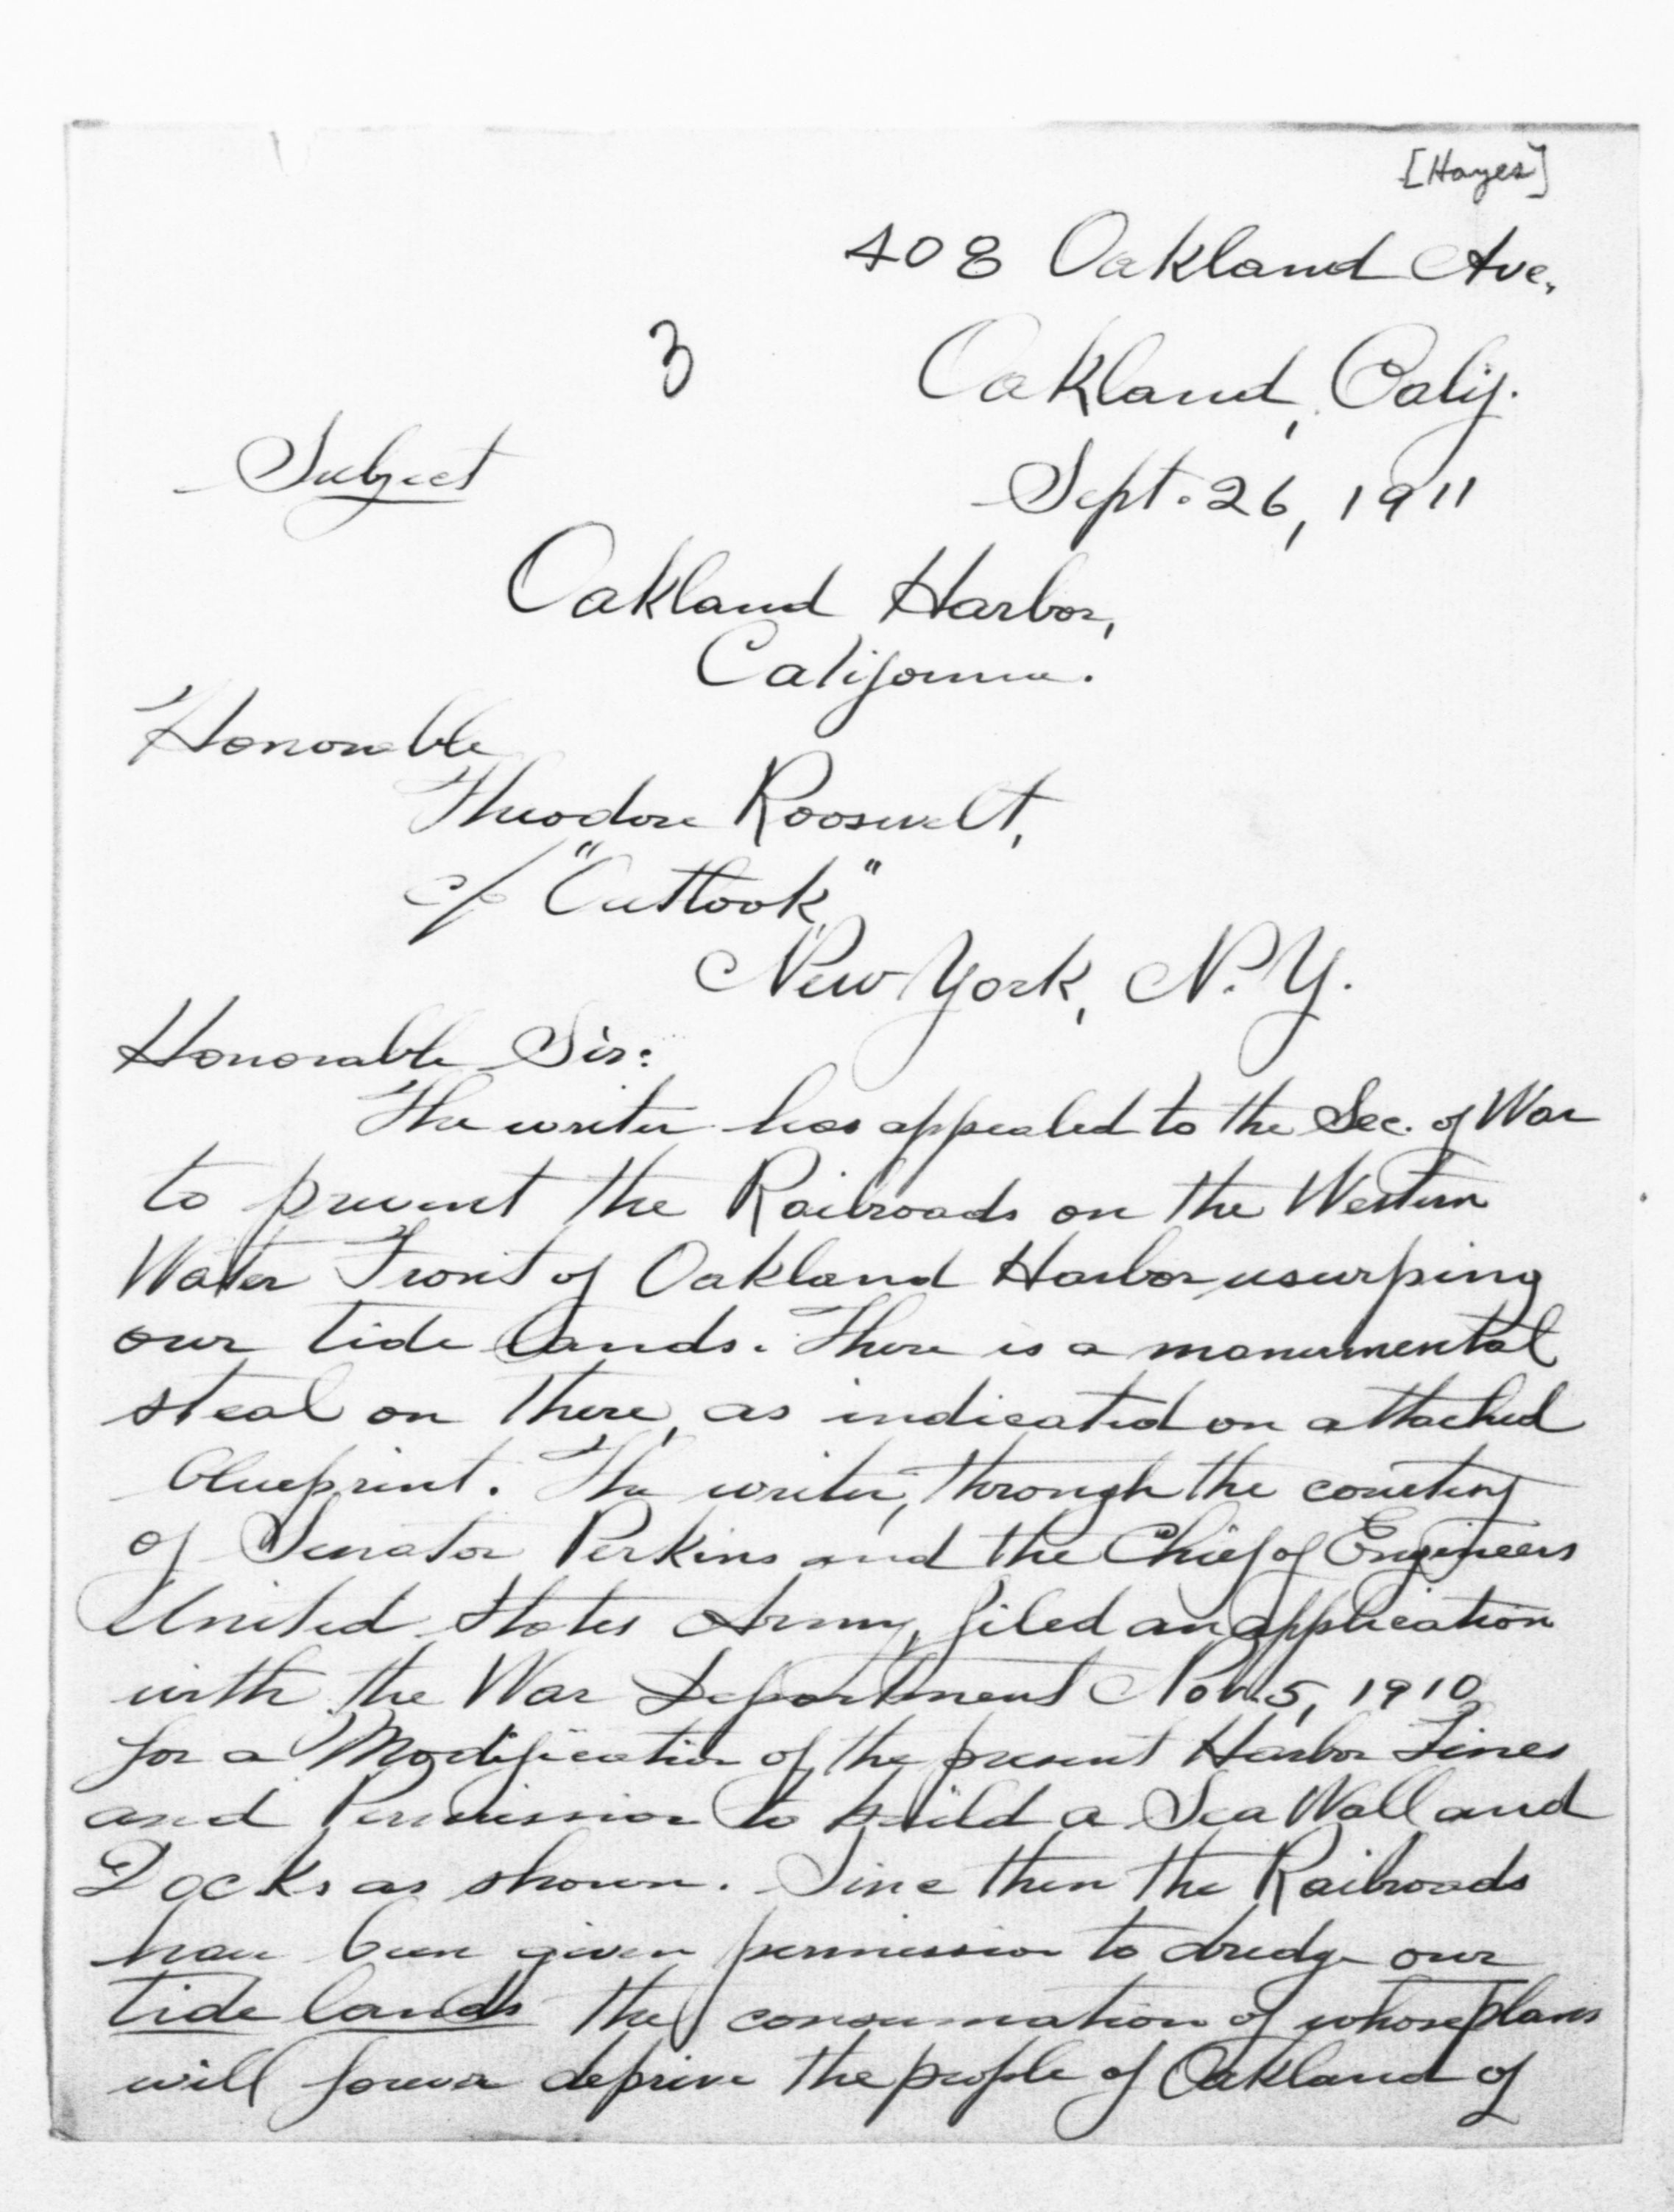 [Hayes]
408 Oakland Ave.,
3
Oakland, Calif.
Subject
Sept. 26, 1911
Oakland Harbor,
California.
Honorable
Theodore Roosevelt,
c/o "Outlook,"
New York, N.Y.
Honorable Sir:
The writer has appealed to the Sec. of War
to prevent the Railroads on the Western
Water Front of Oakland Harbor usurping
our tide lands. There is a monumental
steal on there, as indicated on attached
blueprint. The writer, through the courtesy
of Senator Perkins and the Chief of Engineers
United States Army, filed an application
with the War Department Nov. 5, 1910
for a Modification of the present Harbor Lines
and Permission to build a Sea Wall and
Docks as shown. Since then the Railroads
have been given permission to dredge our
tide lands the consumation of whose plans
will forever deprive the people of Oakland of